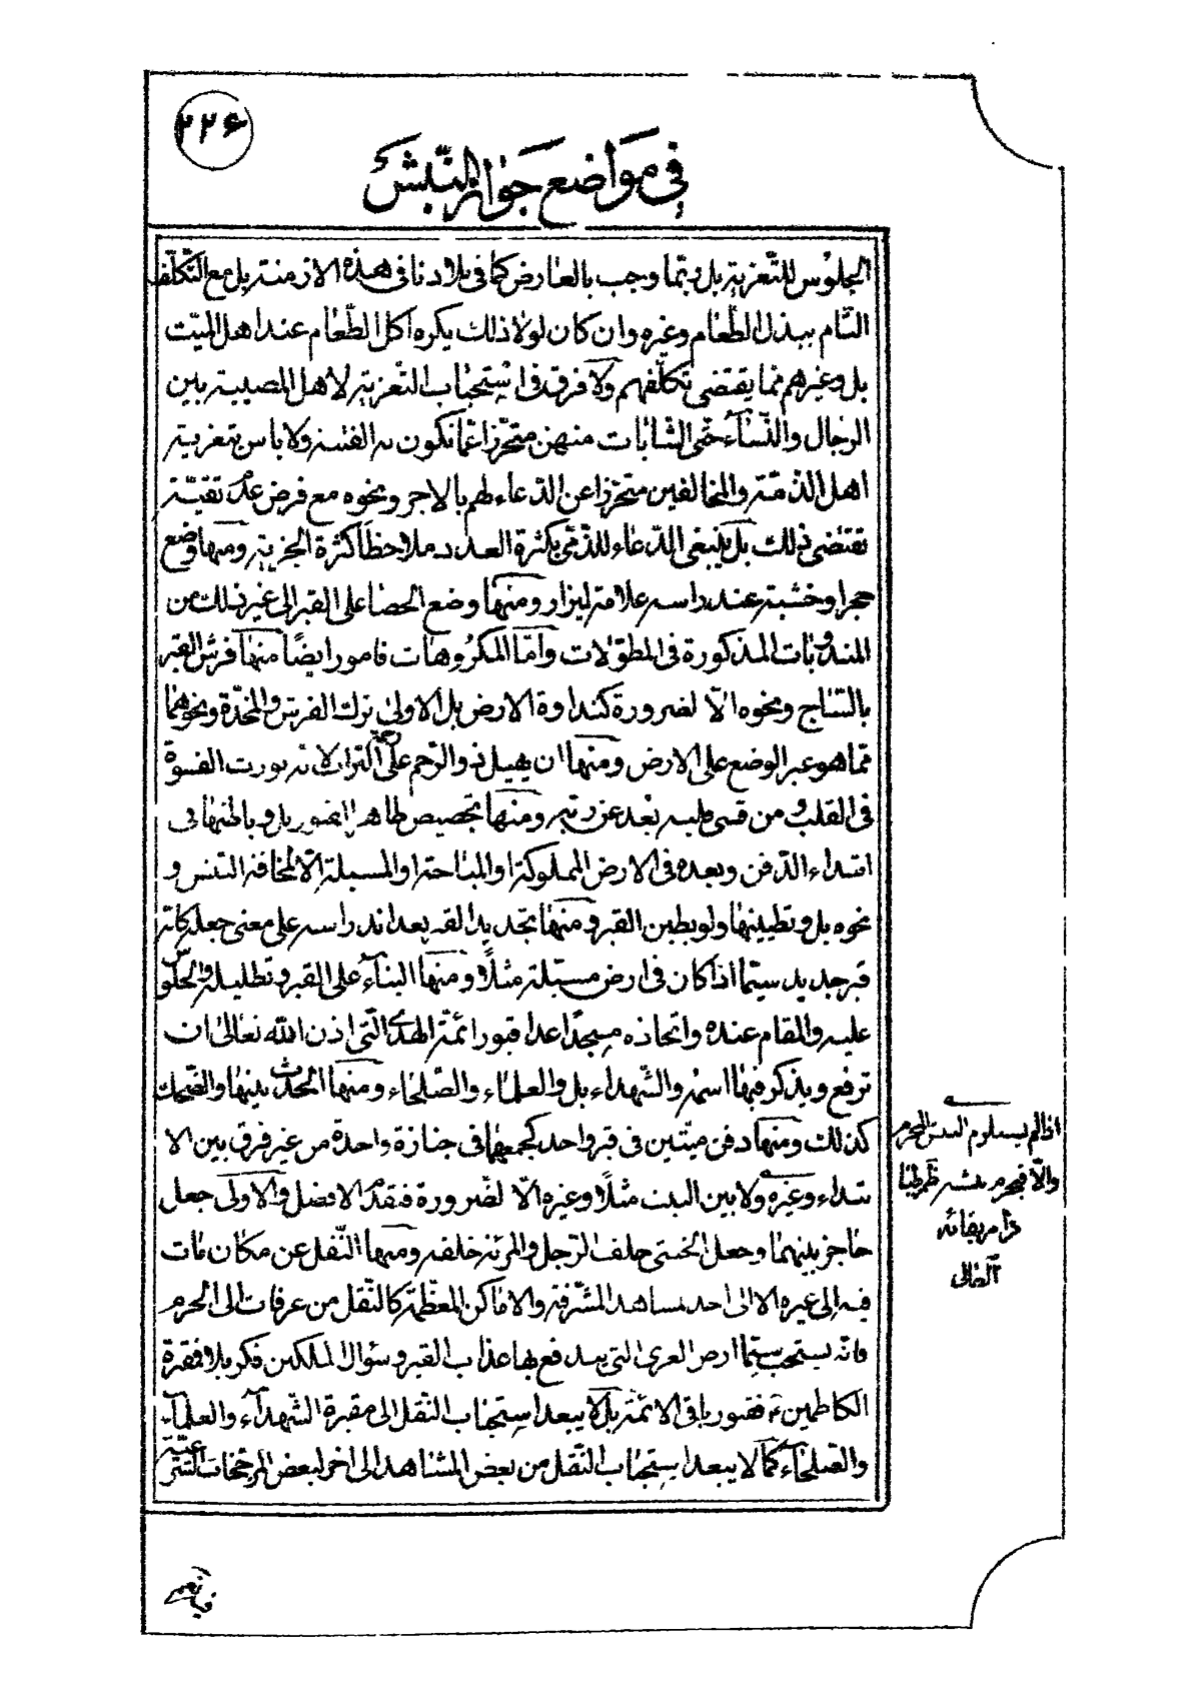 ٢٢۶
في مواضع جواز النبش
الجلوس للتعزية بل ربما وجب بالعارض كما في بلادنا في هذه الازمنة بل مع التكلف
التام ببذل الطعام وغيره وان كان لولا ذلك يكره اكل الطعام عند اهل الميت
بل وغيرهم مما يقتضي تكلفهم ولا فرق في استحباب التعزية لاهل المصيبة بين
الرجال والنساء حتى الشابات منهن متحرزا عما تكون به الفتنة ولا باس بتعزية
اهل الذمة والمخالفين متحرزا عن الدعاء لهم بالاجر ونحوه مع فرض عدم تقية
تقتضي ذلك بل ينبغي الدعاء للذمي بكثرة العدد ملاحظا كثرة الجزية ومنها وضع
حجر او خشبة عند راسه علامة ليزار ومنها وضع الحصا على القبر الى غير ذلك من
المندوبات المذكورة في المطولات واما المكروهات فامور ايضًا منها فرش القبر
بالساج ونحوه الا لضرورة كنداوة الارض بل الاولى ترك الفرش والمخدة ونحوهما
مما هو غير الوضع على الارض ومنها ان يهيل ذو الرحم على رحمه التراب لانه يورث القسوة
في القلب و من قسى قلبه بعد عن ربه ومنها تجصيص ظاهر القبور بل وباطنها في
ابتداء الدفن وبعده في الارض المملوكة او المباحة او المسبلة الا لمخافة النبش و
نحوه بل وتطيينها ولو بطين القبر ومنها تجديد القبر بعد اندراسه على معنى جعله كانه
قبر جديد سيما اذا كان في ارض مسبلة مثلًا ومنها البناء على القبر وتظليله والجلوس
عليه والمقام عنده واتخاذه مسجدًا عدا قبور ائمة الهدى التي اذن الله تعالى ان
ترفع ويذكر فيها اسمه والشهداء بل والعلماء والصلحاء ومنها الحدث بينها والضحك
كذلك ومنها دفن ميتين في قبر واحد كجمعهما في جنازة واحدة من غير فرق بين الا
بتداء وغيره ولا بين البنت مثلًا وغيره الا لضرورة فيقدم الافضل والاولى جعل
حاجز بينهما وجعل الخنثى خلف الرجل والمرئة خلفه ومنها النقل عن مكان مات
فيه الى غيره الا الى احد مشاهد المشرفة والاماكن المعظمة كالنقل من عرفات الى الحرم
فانه يستحب سيما ارض الغري التي يدفع بها عذاب القبر وسؤال الملكين فكربلا فمقبرة
الكاظمين فقبور باقي الائمة بل لا يبعد استحباب النقل الى مقبرة الشهداء والعلماء
والصلحاء كما لا يبعد استحباب النقل من بعض المشاهد الى اخر لبعض المرجحات الشرعية
اذا لم يستلزم النبش المحرم
والا فيحرم